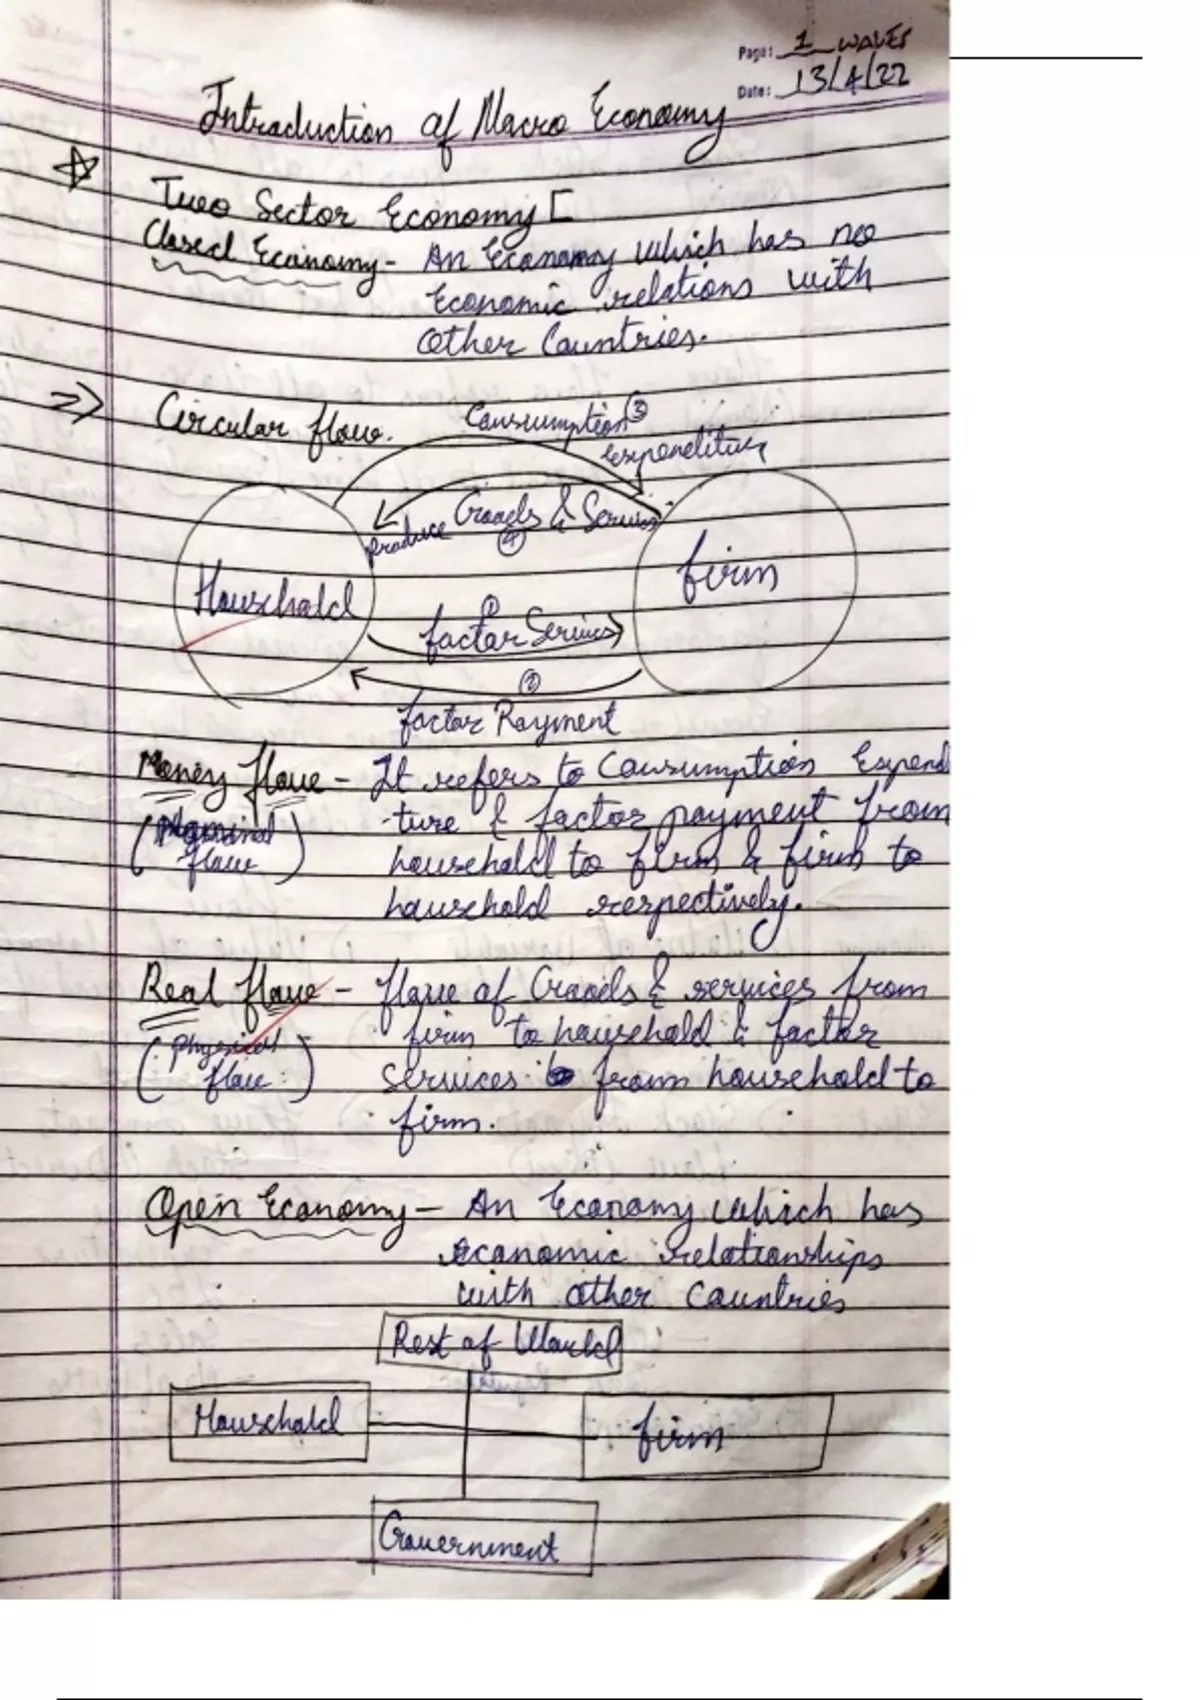 Page: 1 WAVES
Date: 13/4/22
Introduction of Macro Economy
Two Sector Economy [
Closed Economy - An Economy which has no
Economic relations with
Other Countries.
=> Circular flow.
Consumption ③
Expenditure
produce Goods & Services
④
Household
firm
①
factor Services
②
factor Payment
Money flow - It refers to Consumption Expend
(Nominal -ture & factor payment from
flow) household to firm & firm to
household respectively.
Real flow - flow of Goods & services from
(physical firm to household & factor
flow.) services from household to
firm.
Open Economy - An Economy which has
economic relationships
with other Countries
Rest of World
Household
firm
Government